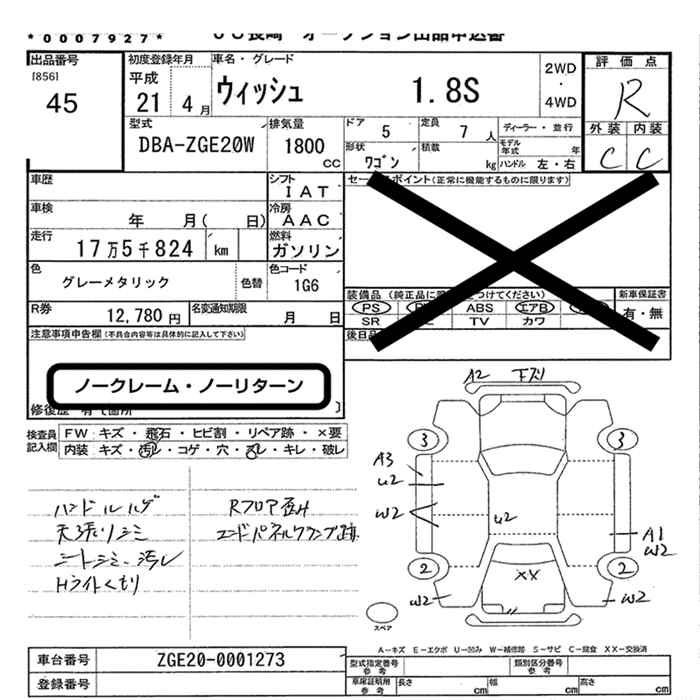 *0007927* JU長崎 オークション出品申込書
出品番号 初度登録年月 車名・グレード 2WD ・ 4WD 評価点
[856] 45 平成 21 4月 ウィッシュ 1.8S R
型式 排気量 ドア 5 定員 7人 ディーラー・並行 外装 内装
DBA-ZGE20W 1800 cc 形状 ワゴン 積載 kg モデル年式 年 ハンドル 左・右 C C
車歴 シフト IAT セールスポイント(正常に機能するものに限ります)
車検 年 月( 日) 冷房 AAC
走行 17万5千824 km 燃料 ガソリン
色 グレーメタリック 色替 色コード 1G6
装備品 新車保証書
PS ABS エアB 有・無
SR TV カワ
R券 12,780円 名変通知期限 月 日
注意事項申告欄(不具合内容等は具体的に記入して下さい) 後日品
ノークレーム・ノーリターン
修復歴 有(箇所 )
検査員記入欄 FW:キズ・飛石・ヒビ割・リペア跡・×要
内装:キズ・汚れ・コゲ・穴・スレ・キレ・破レ
ハンドルハゲ
天張りシミ
シートシミ、汚レ
Hライトくもり
Rフロア歪み
エンドパネルクランプ跡
A2 下スリ
3 3
A3
u2
w2
u2
A1
w2
2 2
XX
w2 w2
スペア
A-キズ E-エクボ U-凹み W-補修跡 S-サビ C-腐食 XX-交換済
車台番号 ZGE20-0001273 型式指定番号 参考 類別区分番号 参考
登録番号 車庫証明用 参考 長さ cm 幅 cm 高さ cm